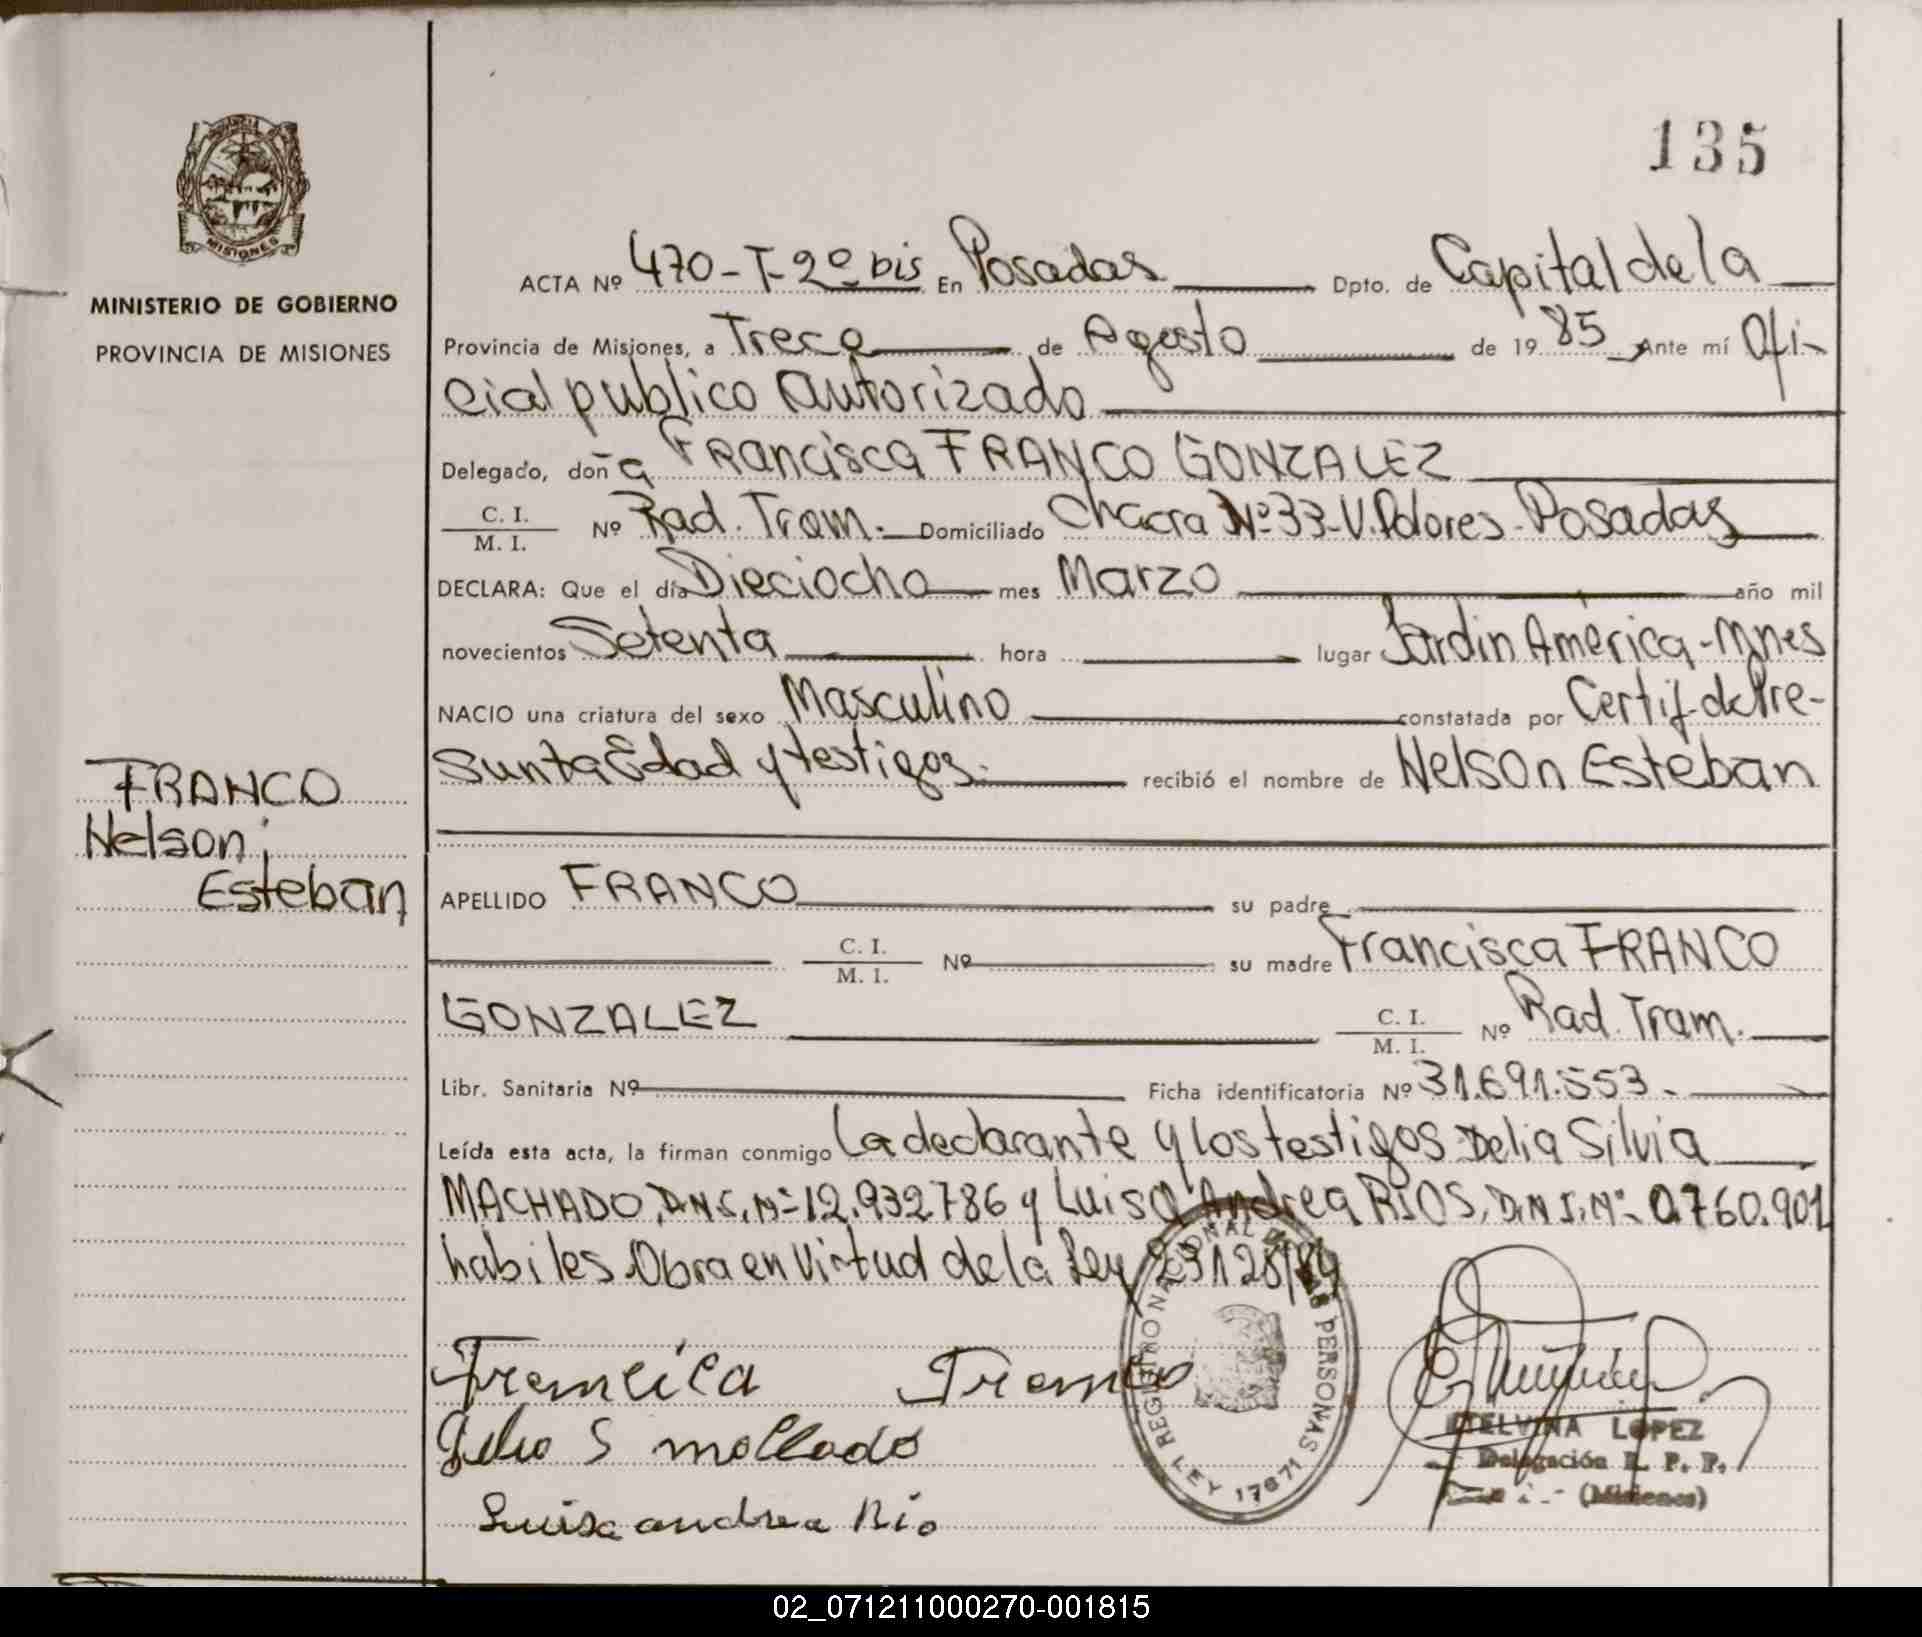 135
MISIONES
MINISTERIO DE GOBIERNO
PROVINCIA DE MISIONES
ACTA Nº 470-T-2º bis En Posadas Dpto. de Capital de la
Provincia de Misiones, a Trece de Agosto de 19 85 Ante mí Ofi-
cial publico autorizado
Delegado, doña Francisca FRANCO GONZALEZ
C. I.
M. I. Nº Rad. Tram. Domiciliado Chacra Nº 33-V. Dolores-Posadas
DECLARA: Que el día Dieciocho mes Marzo año mil
novecientos Setenta hora lugar Jardin América-Mnes
NACIO una criatura del sexo Masculino constatada por Certif. de Pre-
sunta Edad y testigos. recibió el nombre de Nelson Esteban
FRANCO
Nelson
Esteban
APELLIDO FRANCO su padre
C. I.
M. I. Nº su madre Francisca FRANCO
GONZALEZ C. I.
M. I. Nº Rad. Tram.
Libr. Sanitaria Nº Ficha identificatoria Nº 31.691.553.-
Leída esta acta, la firman conmigo La declarante y los testigos: Delia Silvia
MACHADO, D.N.I. Nº 12.932.786 y Luisa Andrea RIOS, D.N.I. Nº
habiles. Obra en Virtud de la Ley 23128/84
Francisca Franco
S
Luisa andrea Rio
REGISTRO NACIONAL DE LAS PERSONAS
LEY 17671
ETELVINA LOPEZ
Delegación R. P. P.
(Misiones)
02_071211000270-001815